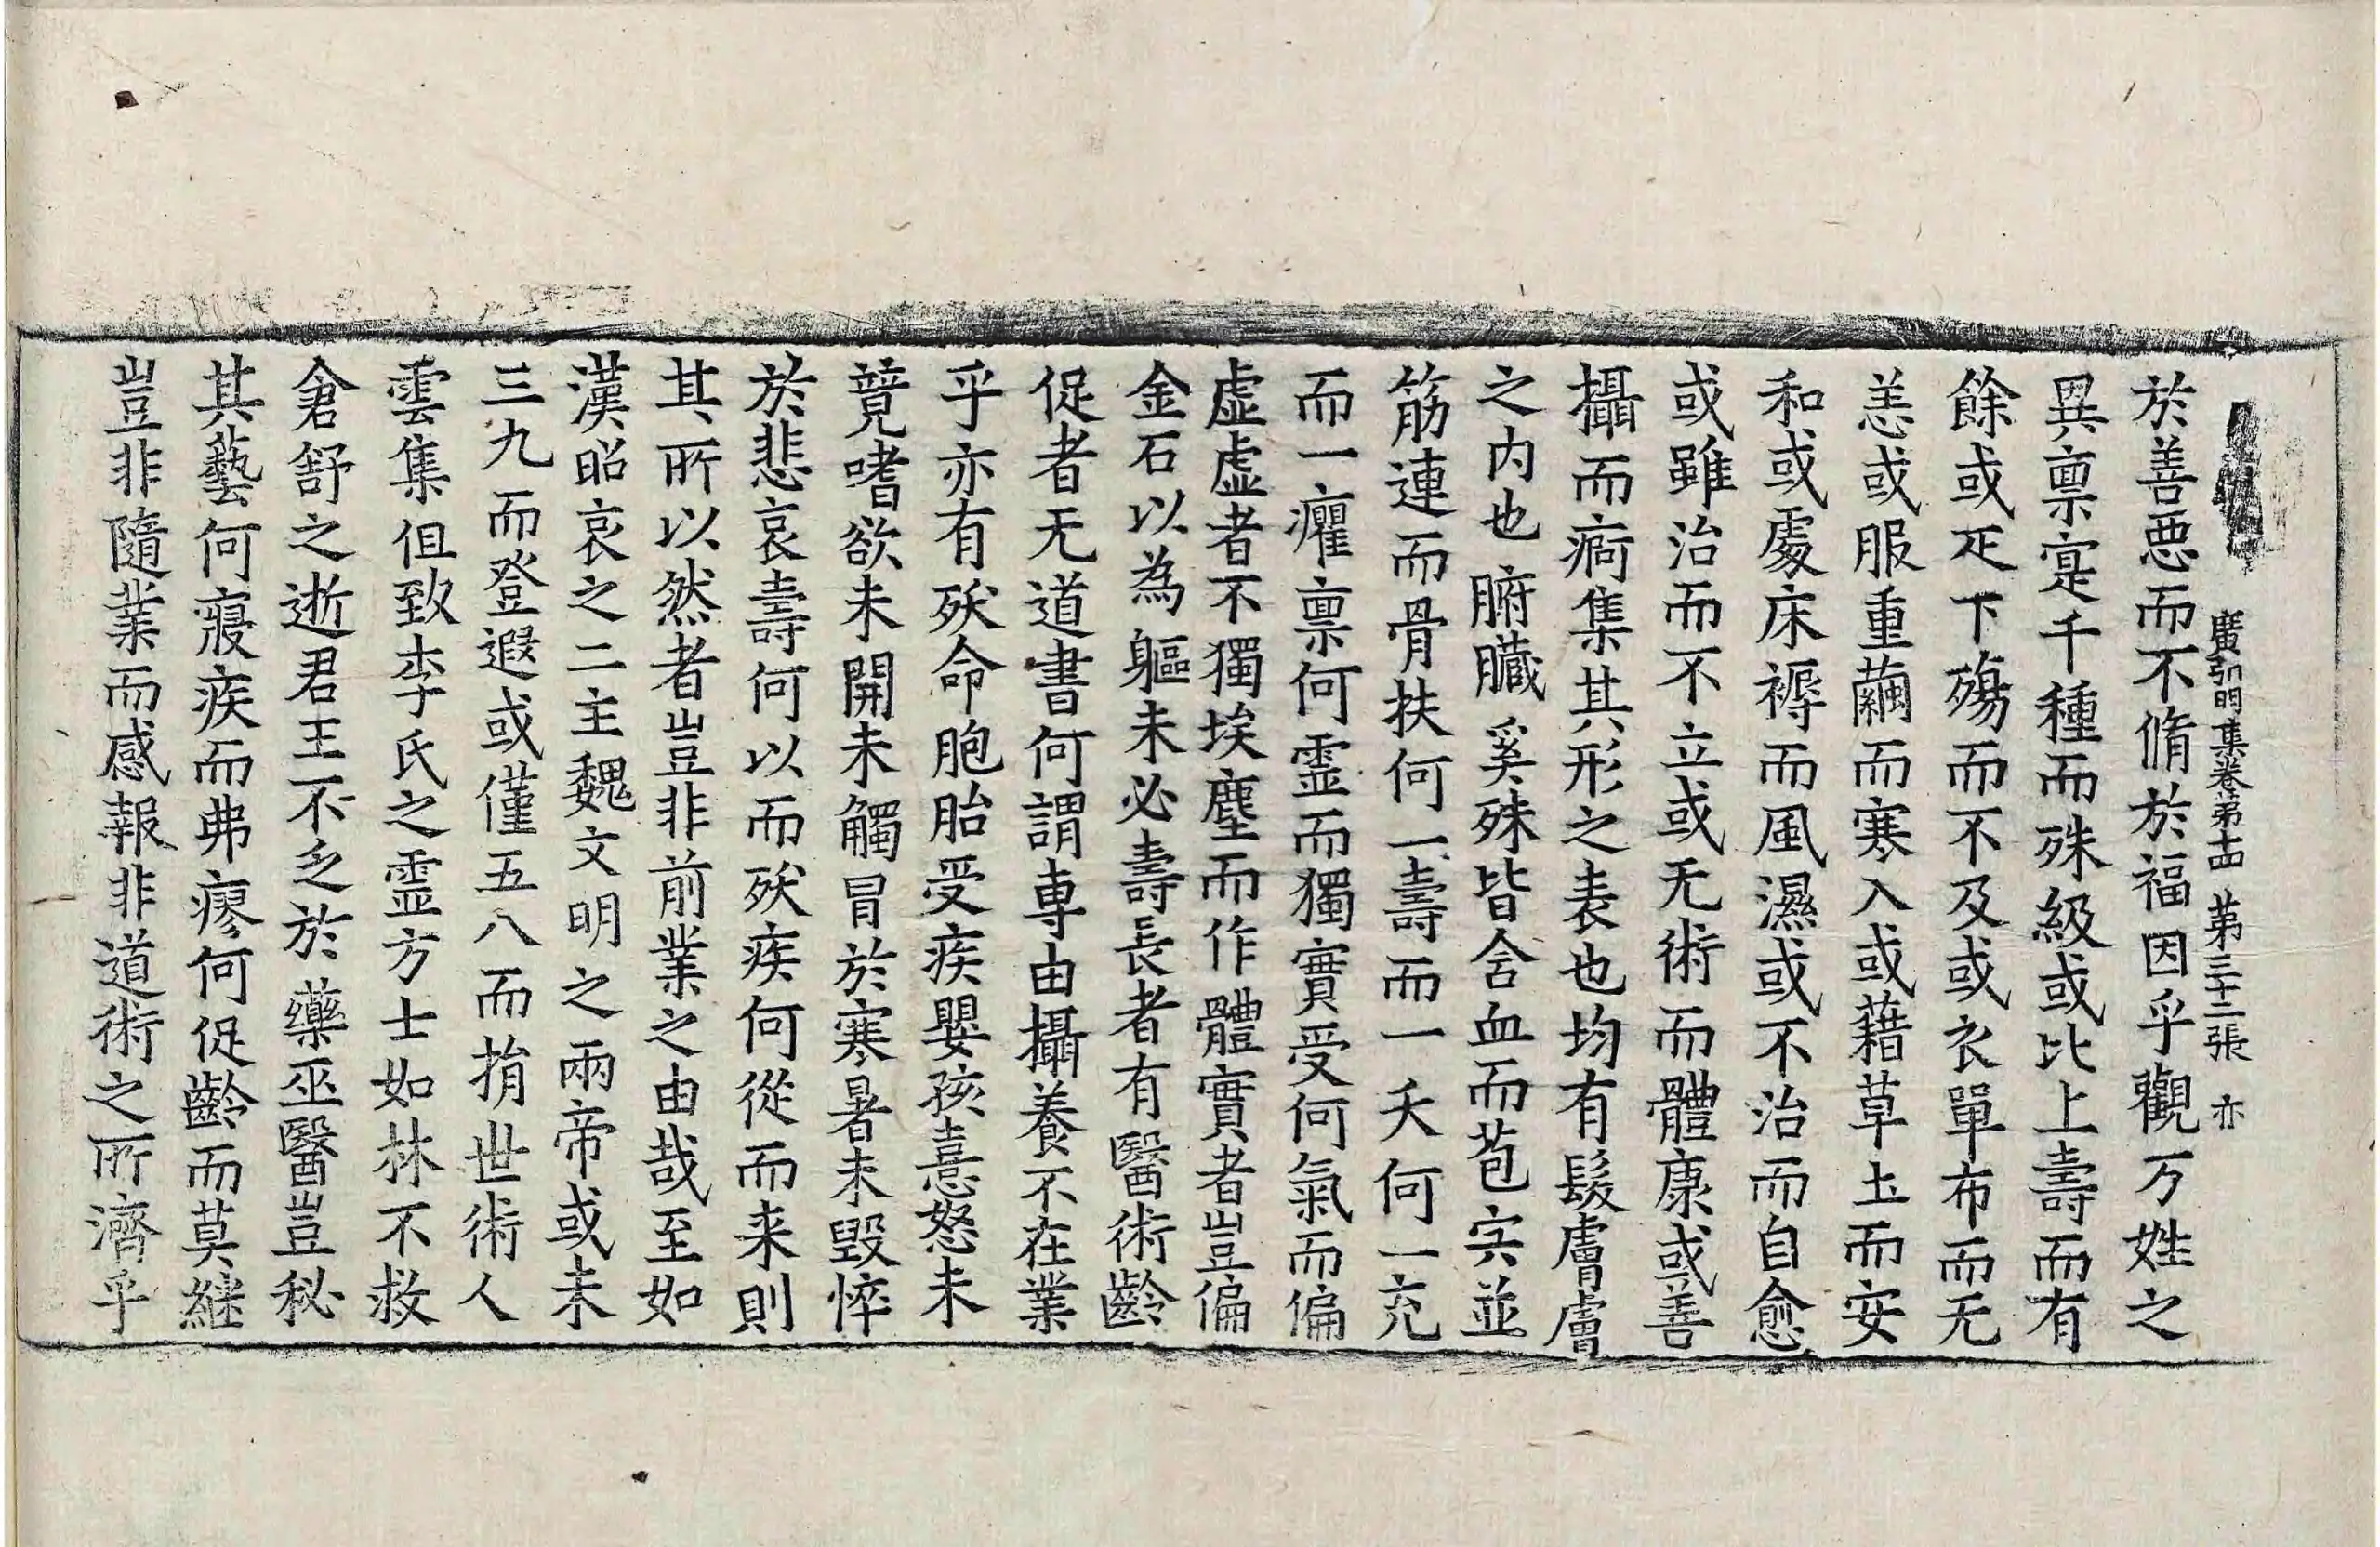 廣弘明集卷苐十四　苐三十三張　亦
於善惡而不脩於福因乎觀万姓之
異稟寔千種而殊級或比上壽而有
餘或疋下殤而不及或衣單布而无
恙或服重繭而寒入或藉草土而安
和或處床褥而風濕或不治而自愈
或雖治而不立或无術而體康或善
攝而痾集其形之表也均有髮膚膚
之内也腑臟奚殊皆含血而苞宍並
筋連而骨扶何一壽而一夭何一充
而一癯稟何靈而獨實受何氣而偏
虛虛者不獨埃塵而作體實者豈偏
金石以為軀未必壽長者有醫術齡
促者无道書何謂專由攝養不在業
乎亦有殀命胞胎受疾嬰孩憙怒未
竟嗜欲未開未觸冒於寒暑未毀悴
於悲哀壽何以而殀疾何從而来則
其所以然者豈非前業之由哉至如
漢昭哀之二主魏文明之兩帝或未
三九而登遐或僅五八而捐世術人
雲集但致李氏之靈方士如林不救
倉舒之逝君王不乏於藥巫醫豈秘
其藝何寢疾而弗瘳何促齡而莫継
豈非隨業而感報非道術之所濟乎